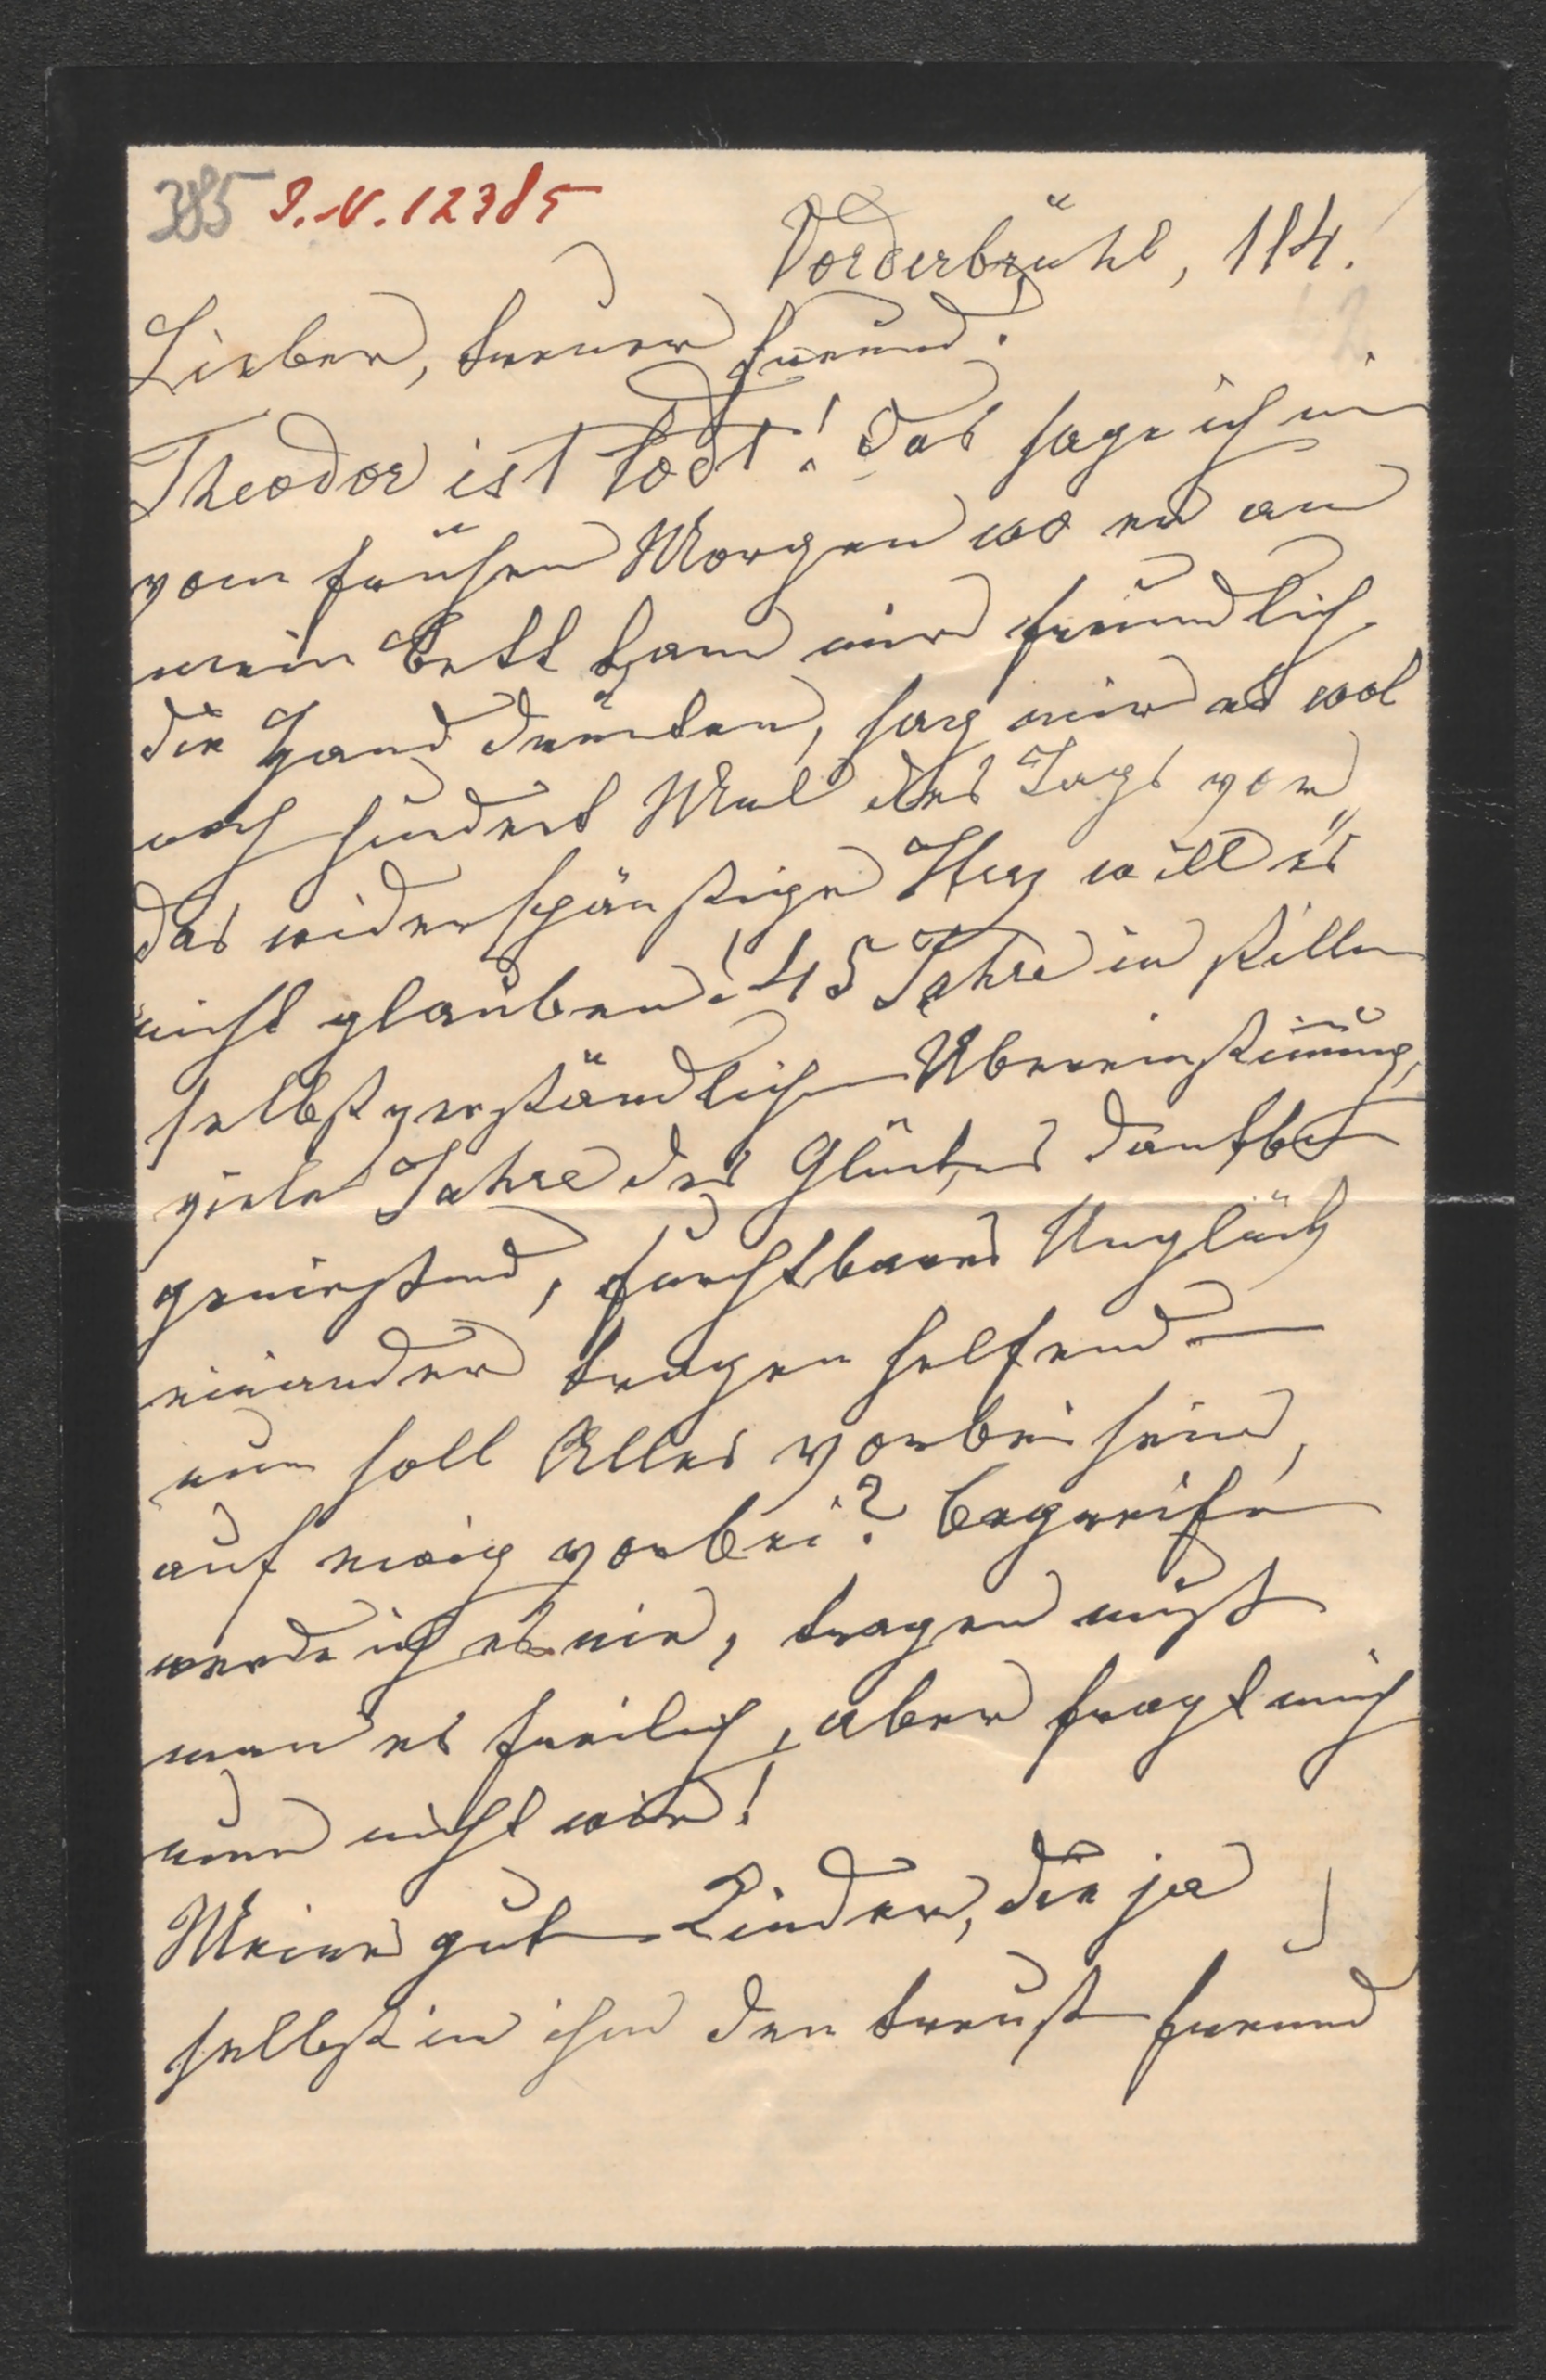 385 I.N.12385
Vorderbrühl, 114.
Lieber, treuer Freund.
Theodor ist todt! Das sage ich mir
vom frühen Morgen wo er an
mein Bett kam mir freundlich
die Hand drücken, sag mir es wol
noch hundert Mal des Tags vor,
das widerspänstige Herz will es
nicht glauben! 45 Jahre in stiller
selbstverständlicher Übereinstimmung,
viele Jahre des Glückes dankbar
genießend, furchtbares Unglück
einander tragen helfend —
nun soll Alles vorbei sein,
auf ewig vorbei? Begreifen
werde ich es nie, tragen muß
man es freilich, aber fragt mich
nur nicht wie!
Meine guten Kinder, die ja
selbst in ihm den treusten Freund